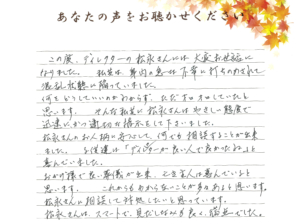 あなたの声をお聴かせください
この度、ディレクターの松永さんには大変お世話に
なりました。 私共は、身内の急な万事に打ちのめされて
混乱状態に陥っていました。
何をどうしていいのかわからず、ただオロオロしていたと
思います。 そんな私共に松永さんはやさしい態度で
迅速にかつ適切な指示をして下さいました。
松永さんのお人柄に安心して、何でも相談することが出来
ました。 子供達は「ディレクターが良い人で良かったね」と
喜んでいました。
おかげ様で良い葬儀が出来、亡き主人は喜んでいると
思います。 これからもわからないことが多々あると思います。
松永さんに相談して対処したいと思っています。
松永さんは、スマートで、見だしなみが良く、満点でした。